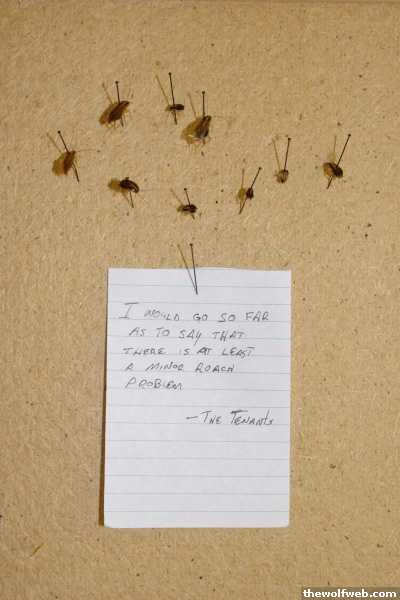 I WOULD GO SO FAR
AS TO SAY THAT
THERE IS AT LEAST
A MINOR ROACH
PROBLEM
—THE TENANTS
thewolfweb.com